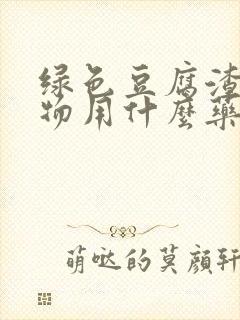 绿色豆腐渣
物用什麼藥
萌哒的莫颜轩